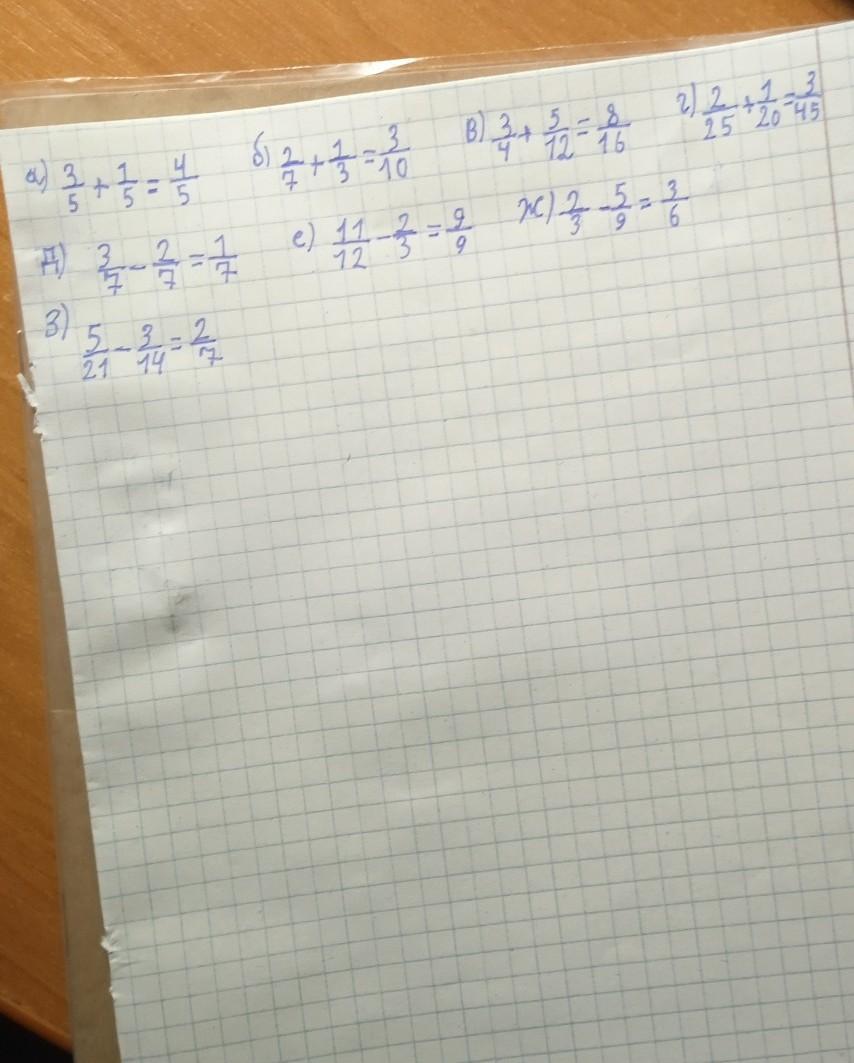 а) 3/5 + 1/5 = 4/5 б) 2/7 + 1/3 = 3/10 в) 3/4 + 5/12 = 8/16 г) 2/25 + 1/20 = 3/45
д) 3/7 - 2/7 = 1/7 е) 11/12 - 2/3 = 9/9 ж) 2/3 - 5/9 = 3/6
з) 5/21 - 3/14 = 2/7